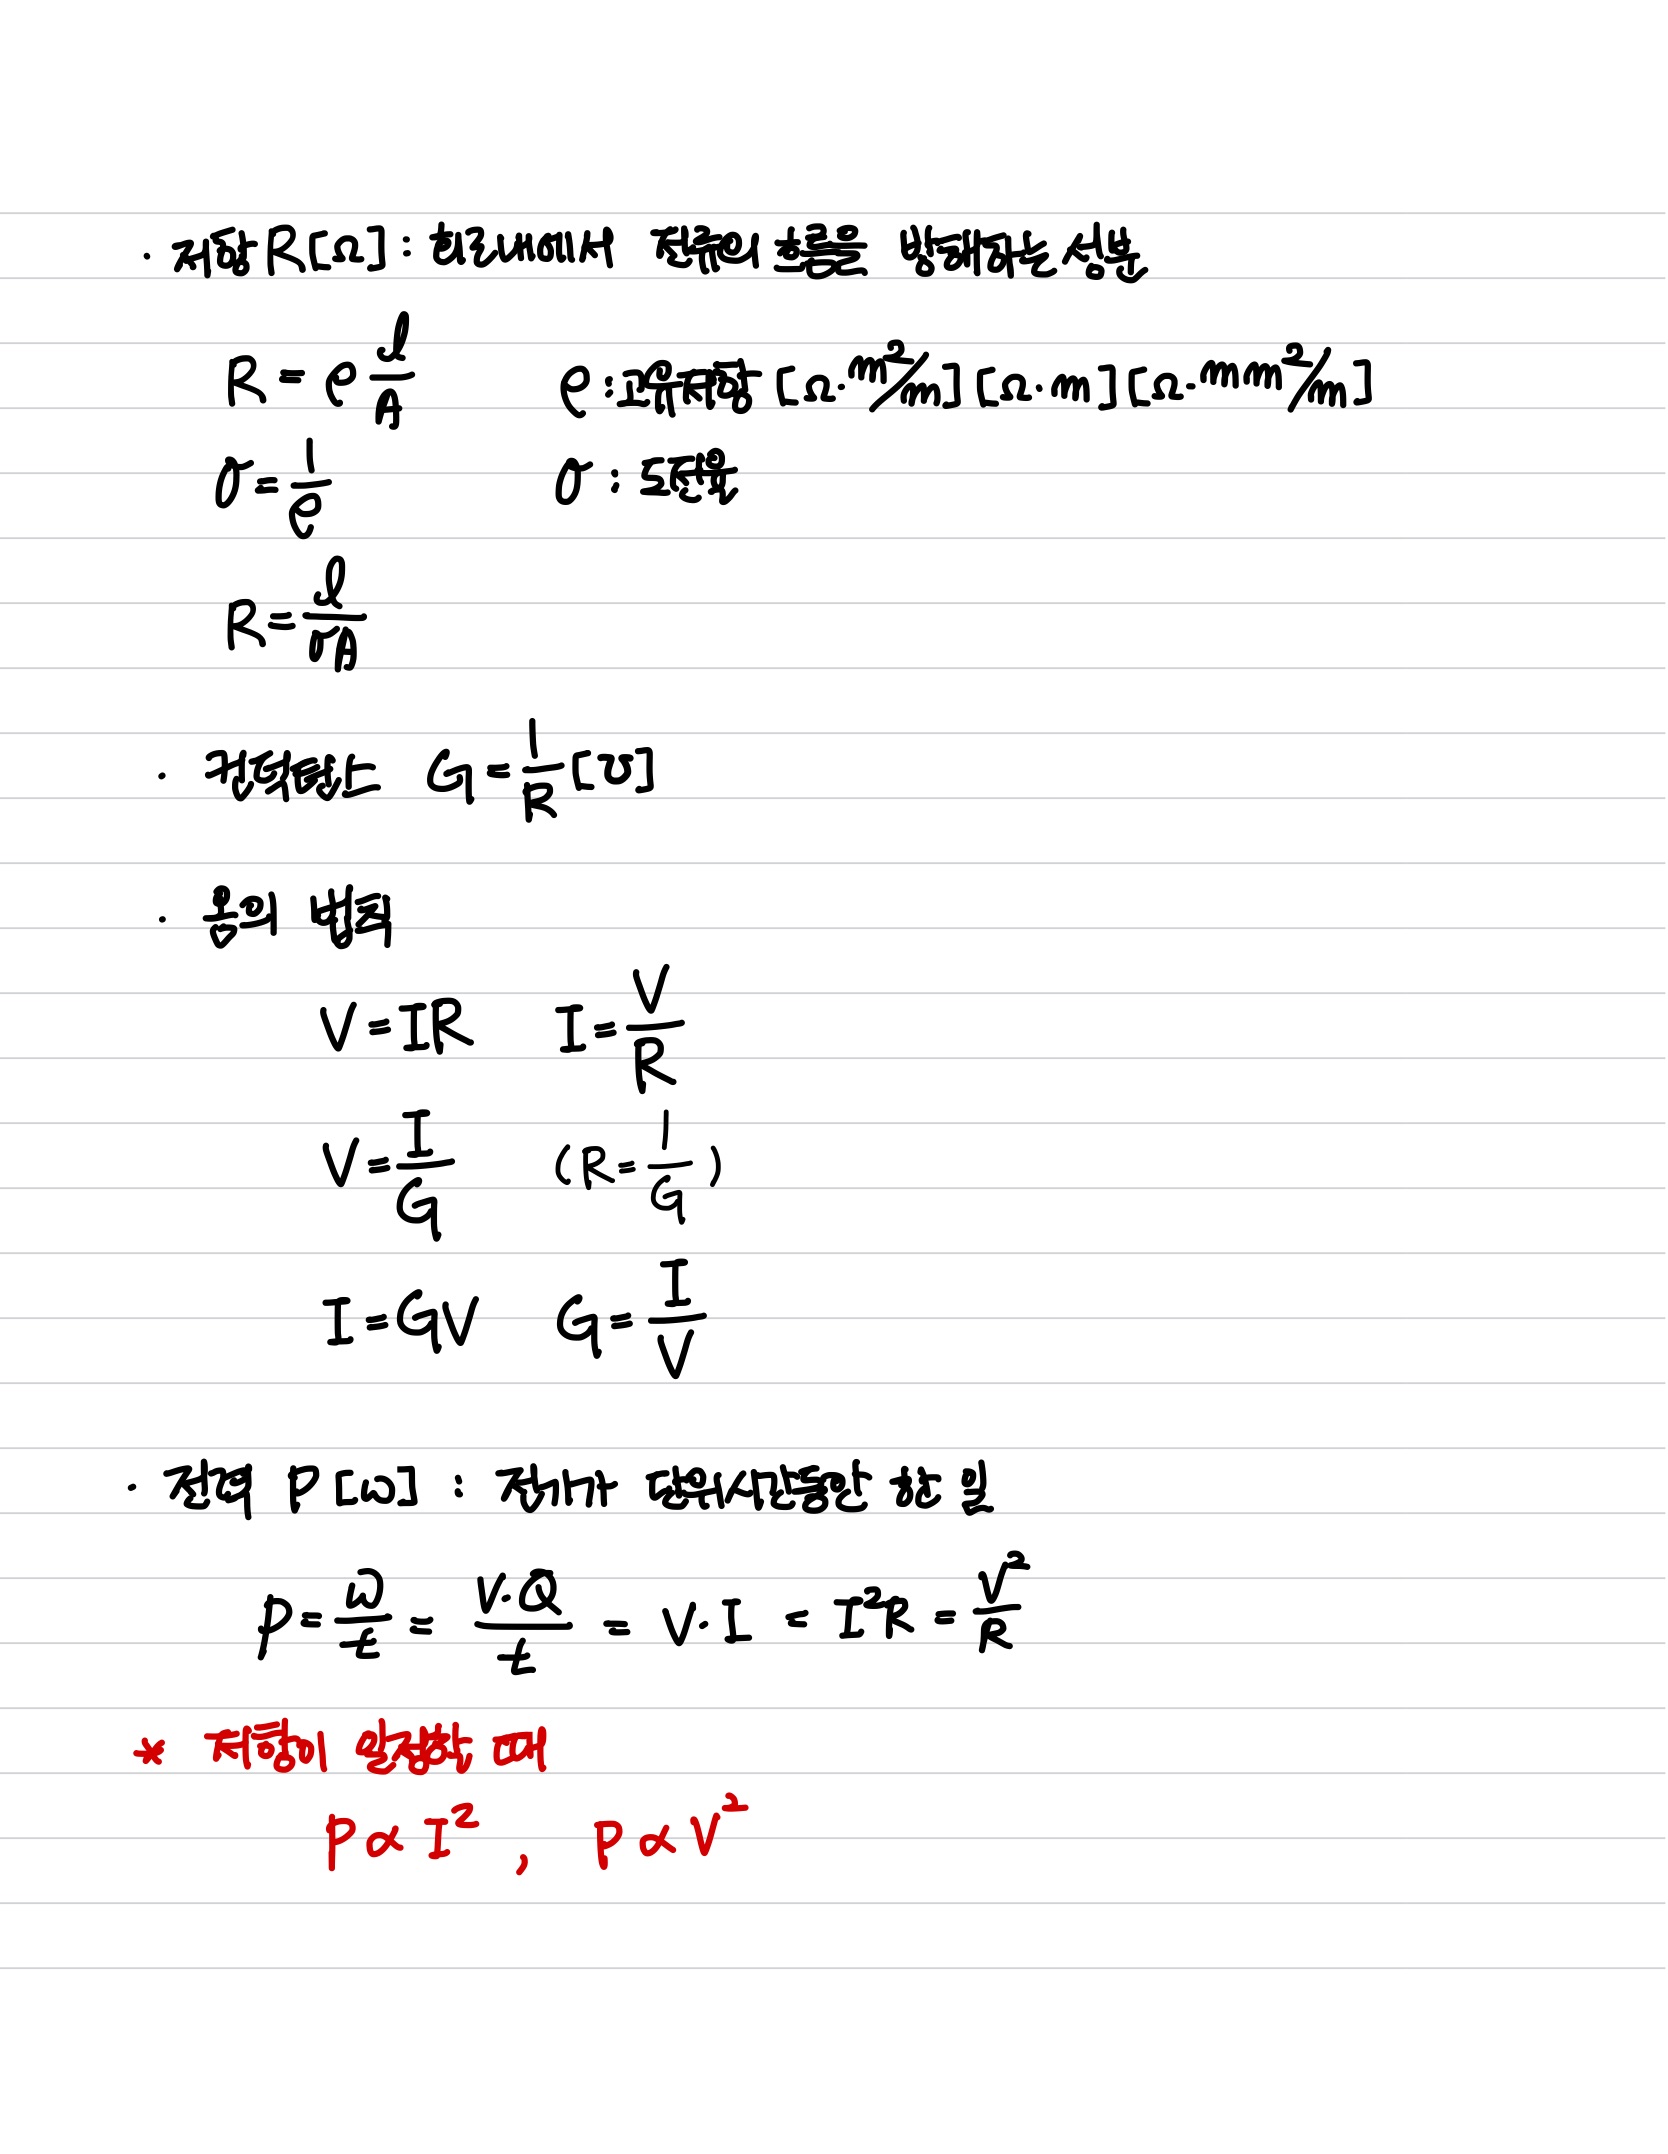 · 저항 R[Ω] : 회로내에서 전류의 흐름을 방해하는 성분
R = ρ l/A ρ : 고유저항 [Ω·m²/m] [Ω·m] [Ω·mm²/m]
σ = 1/ρ σ : 도전율
R = l/σA
· 컨덕턴스 G = 1/R [℧]
· 옴의 법칙
V = IR I = V/R
V = I/G (R = 1/G)
I = GV G = I/V
· 전력 P [W] : 전기가 단위시간동안 한 일
P = W/t = V·Q/t = V·I = I²R = V²/R
* 저항이 일정할 때
P ∝ I² , P ∝ V²